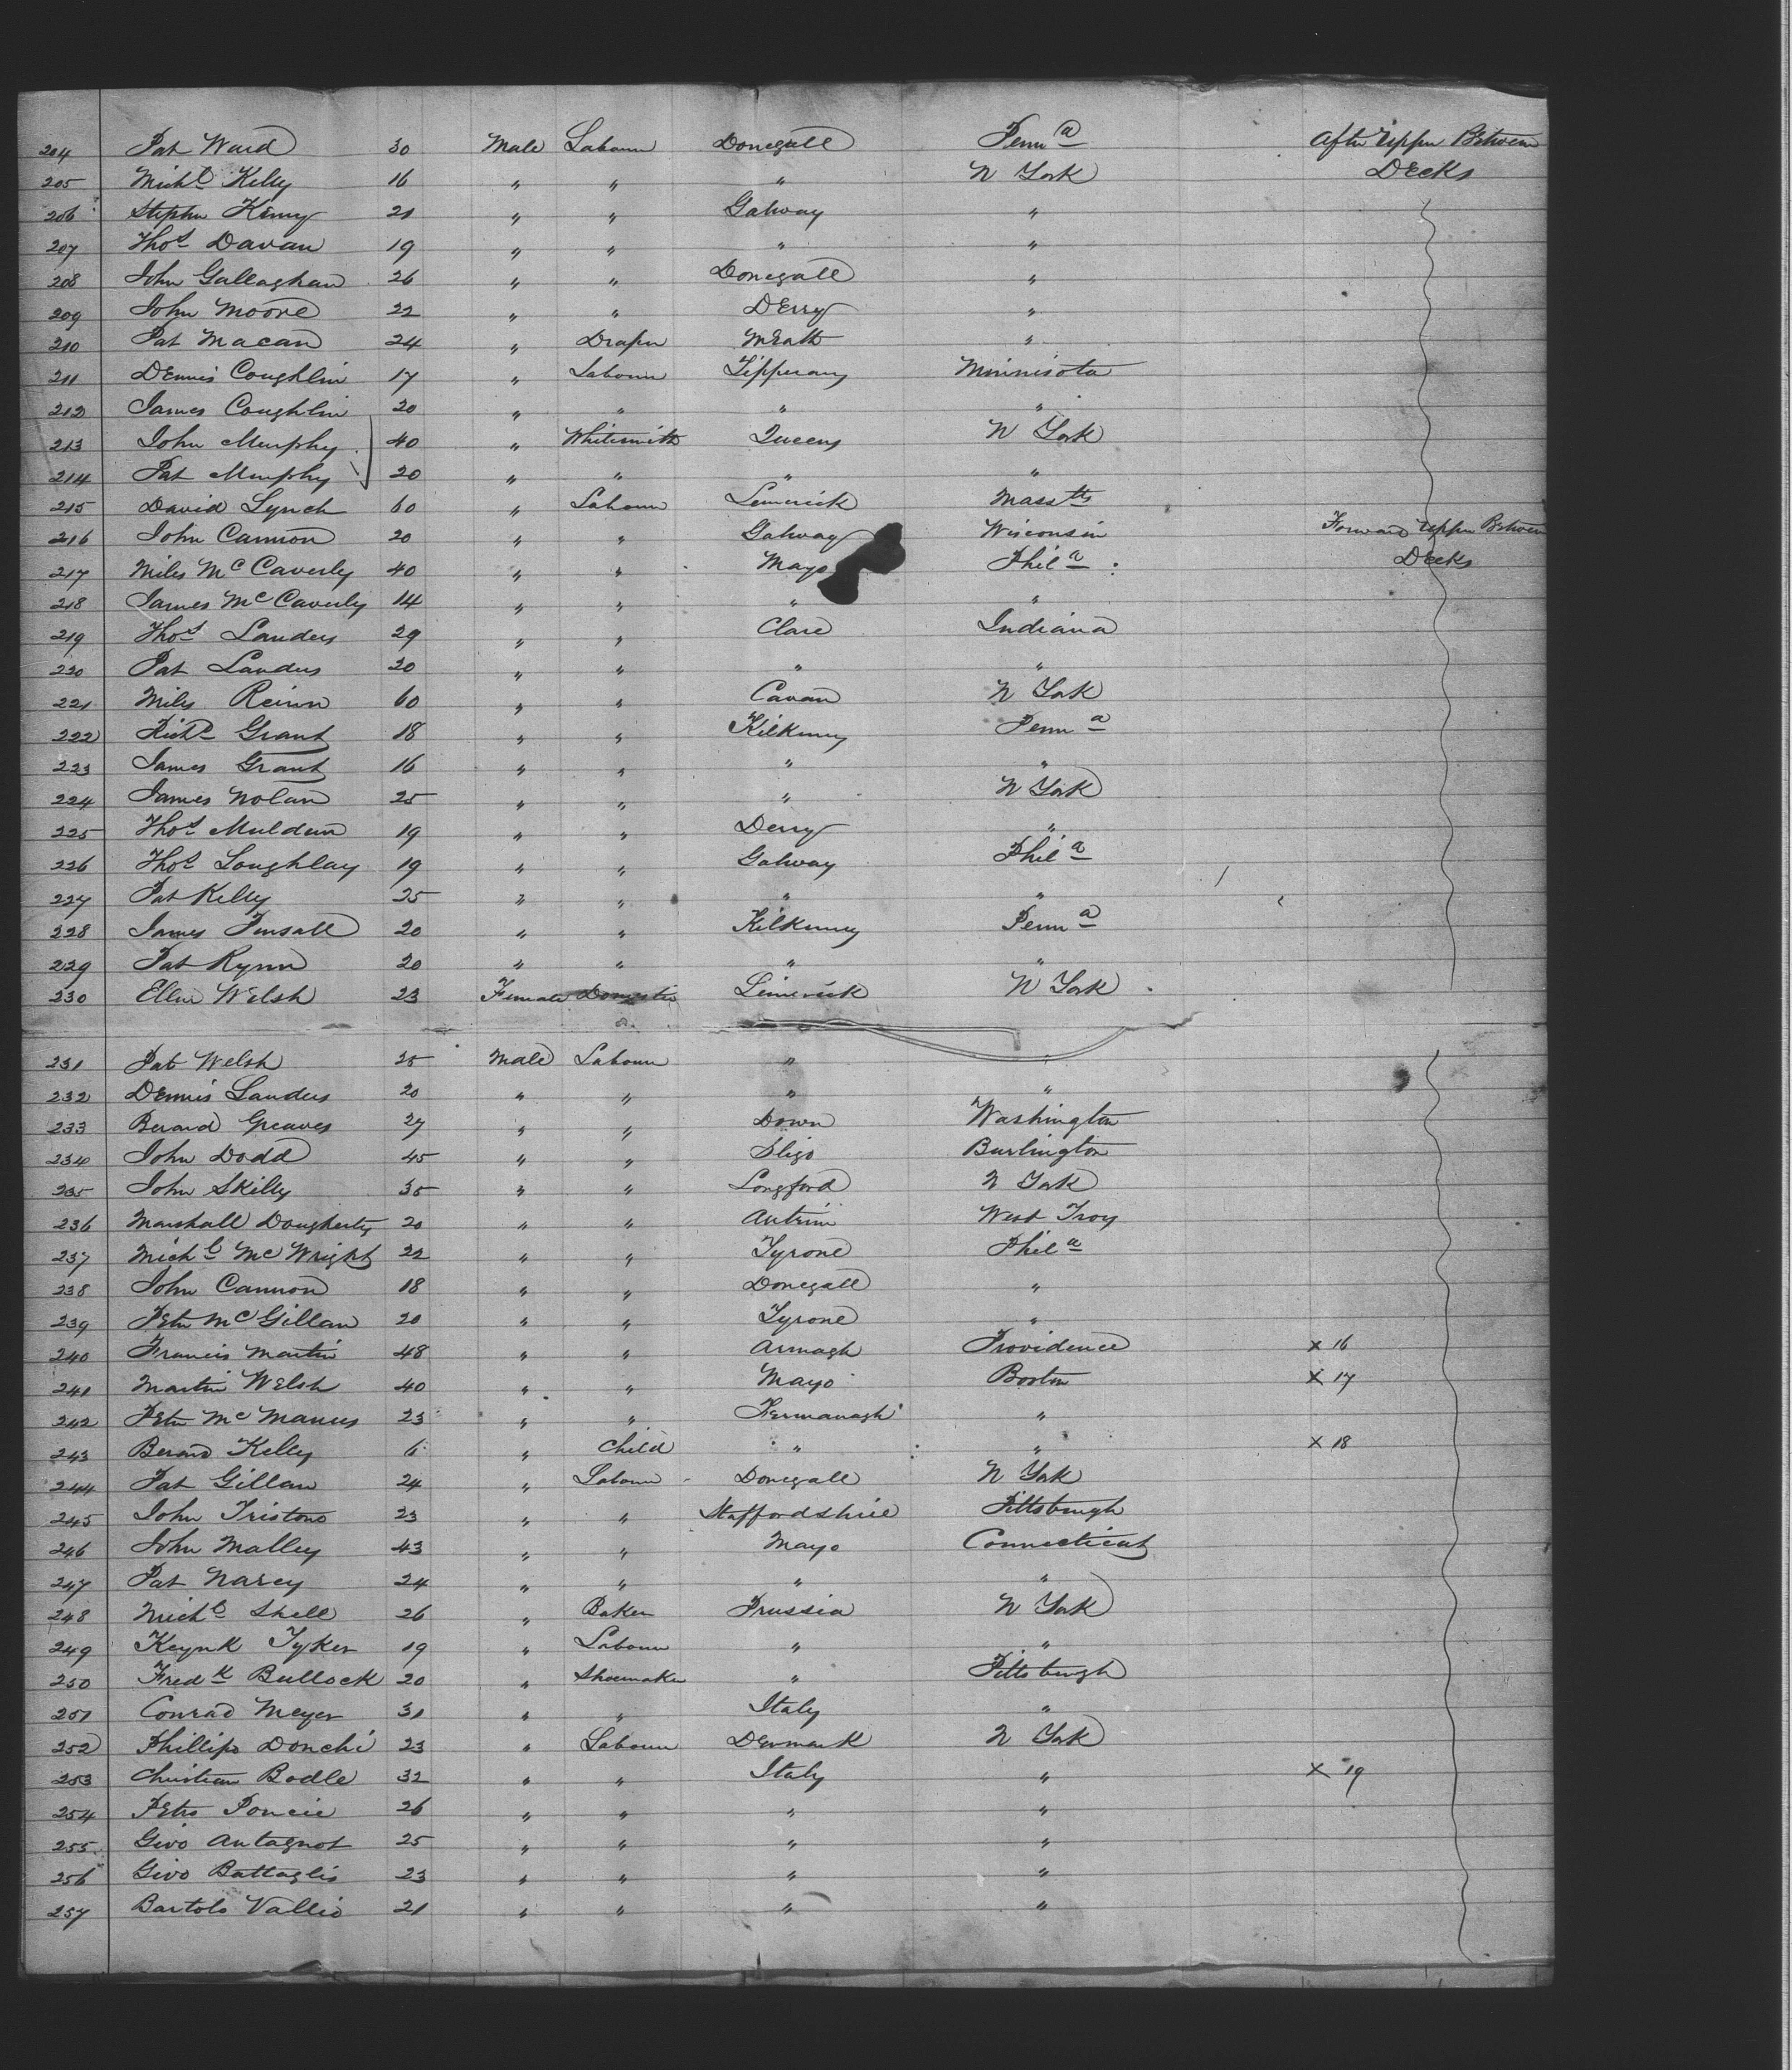 204 Pat Ward 30 Male Labourer Donegall Penn a After Upper Between
205 Mich l Kelly 16 " " " N York Decks
206 Stephen Kenny 21 " " Galway "
207 Tho s Davan 19 " " " "
208 John Gallaghan 26 " " Donegall "
209 John Moore 22 " " Derry "
210 Pat Macan 24 " Draper Meath "
211 Dennis Coughlin 17 " Labourer Tipperary Minnisota
212 James Coughlin 20 " " " "
213 John Murphy 40 " Whitesmith Queens N York
214 Pat Murphy 20 " " " "
215 David Lynch 60 " Labourer Limerick Mass tts
216 John Cannon 20 " " Galway Wisconsin Forward Upper Between
217 Miles Mc Caverly 40 " " Mayo Phil a Decks
218 James Mc Caverly 14 " " " "
219 Tho s Landers 29 " " Clare Indiana
220 Pat Landers 30 " " " "
221 Miles Reinn 60 " " Cavan N York
222 Rich d Grant 18 " " Kilkenny Penn a
223 James Grant 16 " " " "
224 James Nolan 25 " " " N York
225 Tho s Muldern 19 " " Derry "
226 Tho s Loughlay 19 " " Galway Phil a
227 Pat Kelly 25 " " " "
228 James Pursall 20 " " Kilkenny Penn a
229 Pat Rynn 20 " " " "
230 Ellen Welsh 23 Female Domestic Limerick N York
231 Pat Welsh 25 Male Labourer " "
232 Dennis Landers 20 " " " "
233 Berard Greaves 27 " " Down Washington
234 John Dodd 45 " " Sligo Burlington
235 John Skilly 35 " " Longford N York
236 Marshall Dougherty 20 " " Antrim West Troy
237 Mich l Mc Wright 22 " " Tyrone Phil a
238 John Cannon 18 " " Donegall "
239 Peter McGillan 20 " " Tyrone "
240 Francis Martin 48 " " Armagh Providence x 16
241 Martin Welsh 40 " " Mayo Boston x 17
242 Peter Mc Manus 23 " " Fermanagh "
243 Berard Kelly 6 " Child " " x 18
244 Pat Gillan 24 " Labourer Donegall N York
245 John Tristons 23 " " Staffordshire Pittsburgh
246 John Malley 43 " " Mayo Connecticut
247 Pat Narey 24 " " " "
248 Mich l Skell 26 " Baker Prussia N York
249 Keynk Tyker 19 " Labourer " "
250 Fred k Bullock 20 " Shoemaker " Pittsburgh
251 Conrad Meyer 31 " " Italy "
252 Phillipo Donchi 23 " Labourer Denmark N York
253 Christian Bodle 32 " " Italy " x 19
254 Petro Poncie 26 " " " "
255 Givo Antagnot 25 " " " "
256 Givo Battaglis 23 " " " "
257 Bartolo Vallio 21 " " " "